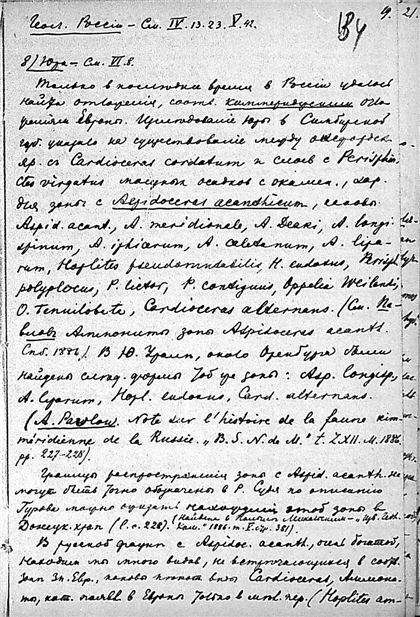 Геол. России – См. IV. 13. 23. V. 42.
8) Юра – См. VI. 8.
Только в последнее время в России удалось
найти отложения, соотв. киммериджским отло-
жениям Европы. Исследование Юры в Симбирской
губ. указало на существование между оксфордск.
яр. с Cardioceras cordatum и слоев с Perisphin-
ctes virgatus мощных осадков с окамен., хар.
для зоны с Aspidoceras acanthicum, каковы:
Aspid. acant., A. meridionale, A. Deaki, A. longi-
spinum, A. iphicerum, A. caletanum, A. lipa-
rum, Hoplites pseudomutabilis, H. eudoxus, Perisp.
polyplocus, P. lictor, P. contiguus, Oppelia Weilandi,
O. tenuilobata, Cardioceras alternans. (См. Па-
влов Аммониты зоны Aspidoceras acanth.
Спб. 1886). В Ю. Урале, около Оренбурга были
найдены след. формы той же зоны: Asp. longisp.,
A. liparum, Hopl. eudoxus, Card. alternans.
(A. Pavlow. Note sur l'histoire de la faune kim-
méridienne de la Russie. „B. S. N. de M." t. LXII. M. 1886,
pp. 227-228).
Границы распространения зоны с Aspid. acanth. не
могут быть точно обозначены в Р. Судя по описанию
Гурова можно ожидать нахождения этой зоны в
Донецк. крае (l. c. 228).
В русской фауне с Aspidoc. acanth., очень богатой,
находим мы много видов, не встречающихся в соотв.
зоне Зп. Евр., каковы многие виды Cardioceras,
кот. в Европы только в (Hoplites